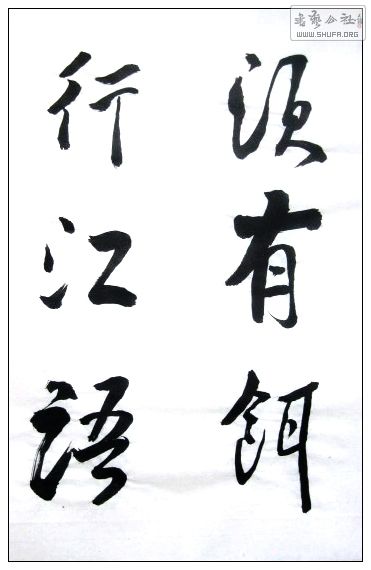 須有餌
行江語
書藝公社
WWW.SHUFA.ORG